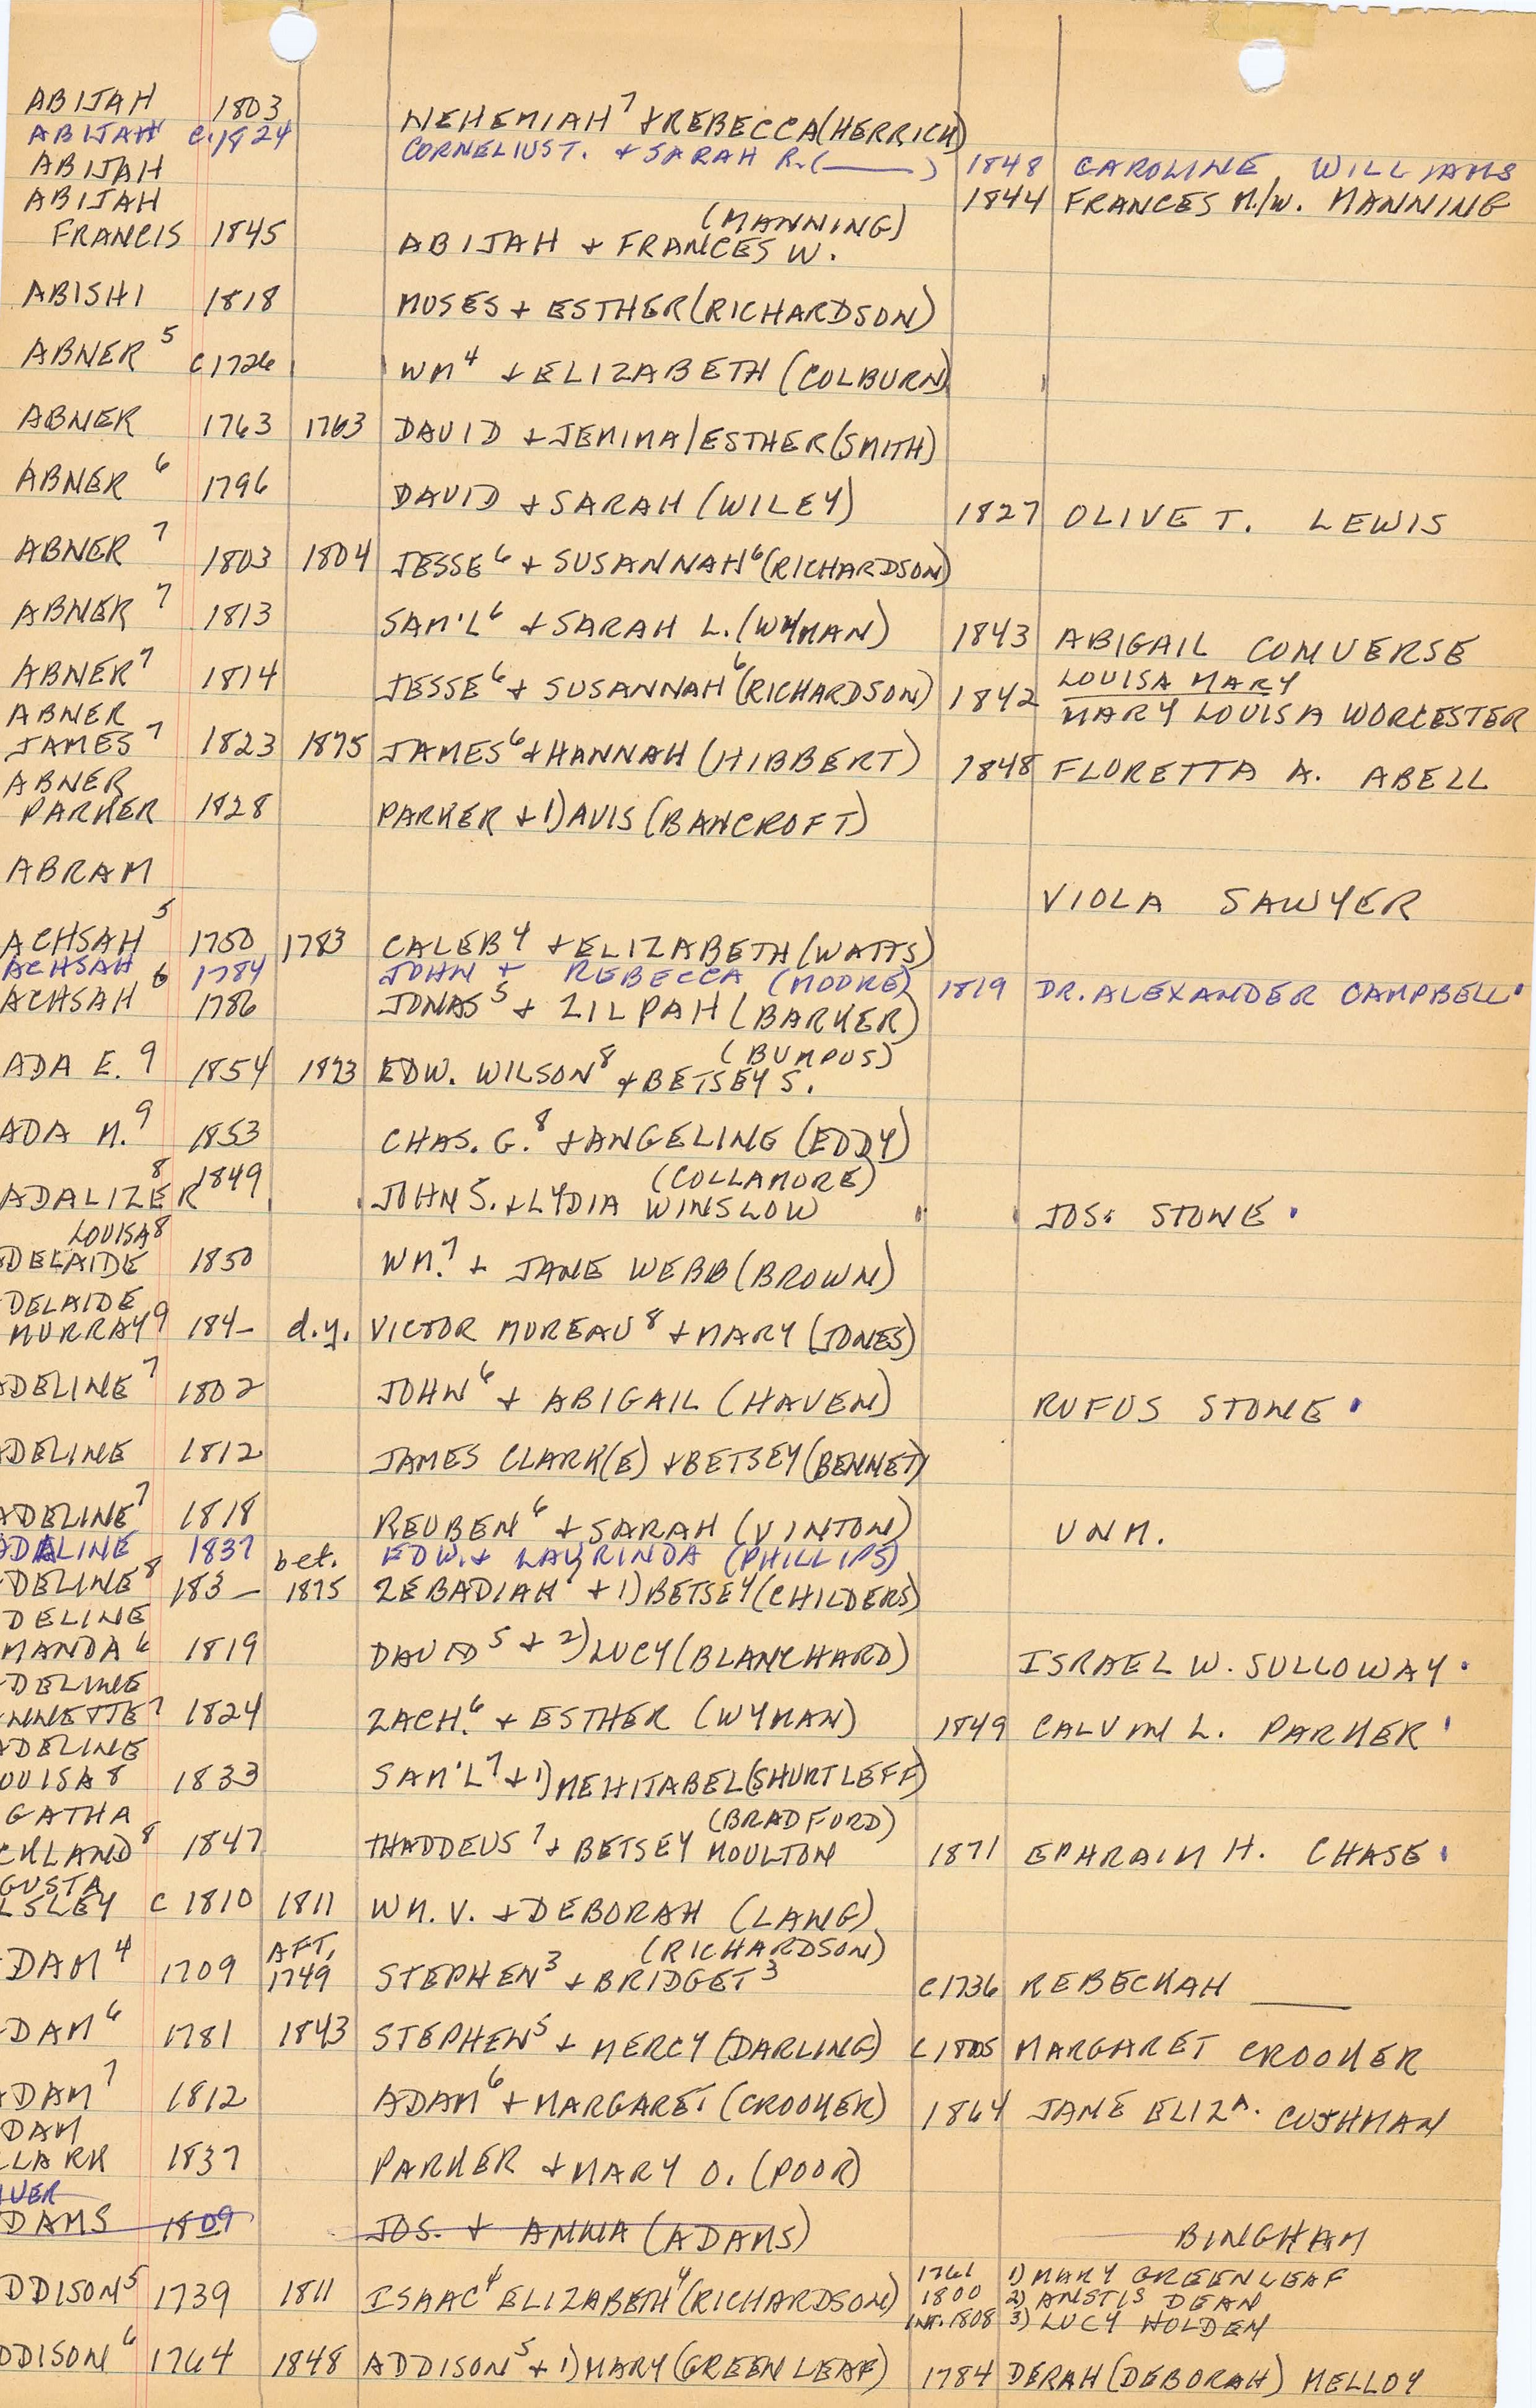 ABIJAH 1803 NEHEMIAH⁷ + REBECCA (HERRICK)
ABIJAH C.1824 CORNELIUS T. + SARAH R. (____) 1848 CAROLINE WILLIAMS
ABIJAH 1844 FRANCES M./W. MANNING
ABIJAH (MANNING)
FRANCIS 1845 ABIJAH + FRANCES W.
ABISHI 1818 MOSES + ESTHER (RICHARDSON)
ABNER⁵ C 1726 WM⁴ + ELIZABETH (COLBURN)
ABNER 1763 1763 DAVID + JEMIMA/ESTHER (SMITH)
ABNER⁶ 1796 DAVID + SARAH (WILEY) 1827 OLIVE T. LEWIS
ABNER⁷ 1803 1804 JESSE⁶ + SUSANNAH⁶ (RICHARDSON)
ABNER⁷ 1813 SAM'L⁶ + SARAH L. (WYMAN) 1843 ABIGAIL CONVERSE
LOUISA MARY
ABNER⁷ 1814 JESSE⁶ + SUSANNAH⁶ (RICHARDSON) 1842 MARY LOUISA WORCESTER
ABNER
JAMES⁷ 1823 1875 JAMES⁶ + HANNAH (HIBBERT) 1848 FLORETTA A. ABELL
ABNER
PARKER 1828 PARKER + 1) AVIS (BANCROFT)
ABRAM VIOLA SAWYER
ACHSAH⁵ 1750 1783 CALEB⁴ + ELIZABETH (WATTS)
ACHSAH 1784 JOHN + REBECCA (MOORE) 1819 DR. ALEXANDER CAMPBELL •
ACHSAH⁶ 1786 JONAS⁵ + ZILPAH (BARKER)
(BUMPUS)
ADA E.⁹ 1854 1873 EDW. WILSON⁸ + BETSEY S.
ADA M.⁹ 1853 CHAS. G.⁸ + ANGELINE (EDDY)
(COLLAMORE)
ADALIZER⁸ 1849 JOHN S. + LYDIA WINSLOW JOS. STONE •
LOUISA⁸
DELAIDE 1850 WM.⁷ + JANE WEBB (BROWN)
DELAIDE
MURRAY⁹ 184- d.y. VICTOR MOREAU⁸ + MARY (JONES)
DELINE⁷ 1802 JOHN⁶ + ABIGAIL (HAVEN) RUFUS STONE •
DELINE 1812 JAMES CLARK(E) + BETSEY (BENNET)
ADELINE⁷ 1818 REUBEN⁶ + SARAH (VINTON) UNM.
ADALINE 1837 EDW. + LAURINDA (PHILLIPS)
bet.
DELINE⁸ 183- 1875 ZEBADIAH⁷ + 1) BETSEY (CHILDERS)
DELINE
MANDA⁶ 1819 DAVID⁵ + 2) LUCY (BLANCHARD) ISRAEL W. SULLOWAY •
DELINE
NNETTE⁷ 1824 ZACH.⁶ + ESTHER (WYMAN) 1849 CALVIN L. PARKER •
DELINE
OUISA⁸ 1833 SAM'L⁷ + 1) MEHITABEL (SHURTLEFF)
GATHA (BRADFORD)
CKLAND⁸ 1847 THADDEUS⁷ + BETSEY MOULTON 1871 EPHRAIM H. CHASE •
GUSTA
LSLEY C 1810 1811 WM. V. + DEBORAH (LANG)
AFT. (RICHARDSON)
DAM⁴ 1709 1749 STEPHEN³ + BRIDGET³ C1736 REBECKAH ____
DAM⁶ 1781 1843 STEPHEN⁵ + MERCY (DARLING) C 1805 MARGARET CROOKER
ADAM⁷ 1812 ADAM⁶ + MARGARET (CROOKER) 1864 JANE ELIZᴬ. CUSHMAN
DAM
LARK 1837 PARKER + MARY O. (POOR)
IVER
DAMS 1809 JOS. + ANNA (ADAMS)
BINGHAM
1761 1) MARY GREENLEAF
DDISON⁵ 1739 1811 ISAAC⁴ ELIZABETH⁴ (RICHARDSON) 1800 2) ANSTIS DEAN
INT. 1808 3) LUCY HOLDEN
DDISON⁶ 1764 1848 ADDISON⁵ + 1) MARY (GREENLEAF) 1784 DERAH (DEBORAH) MELLOY